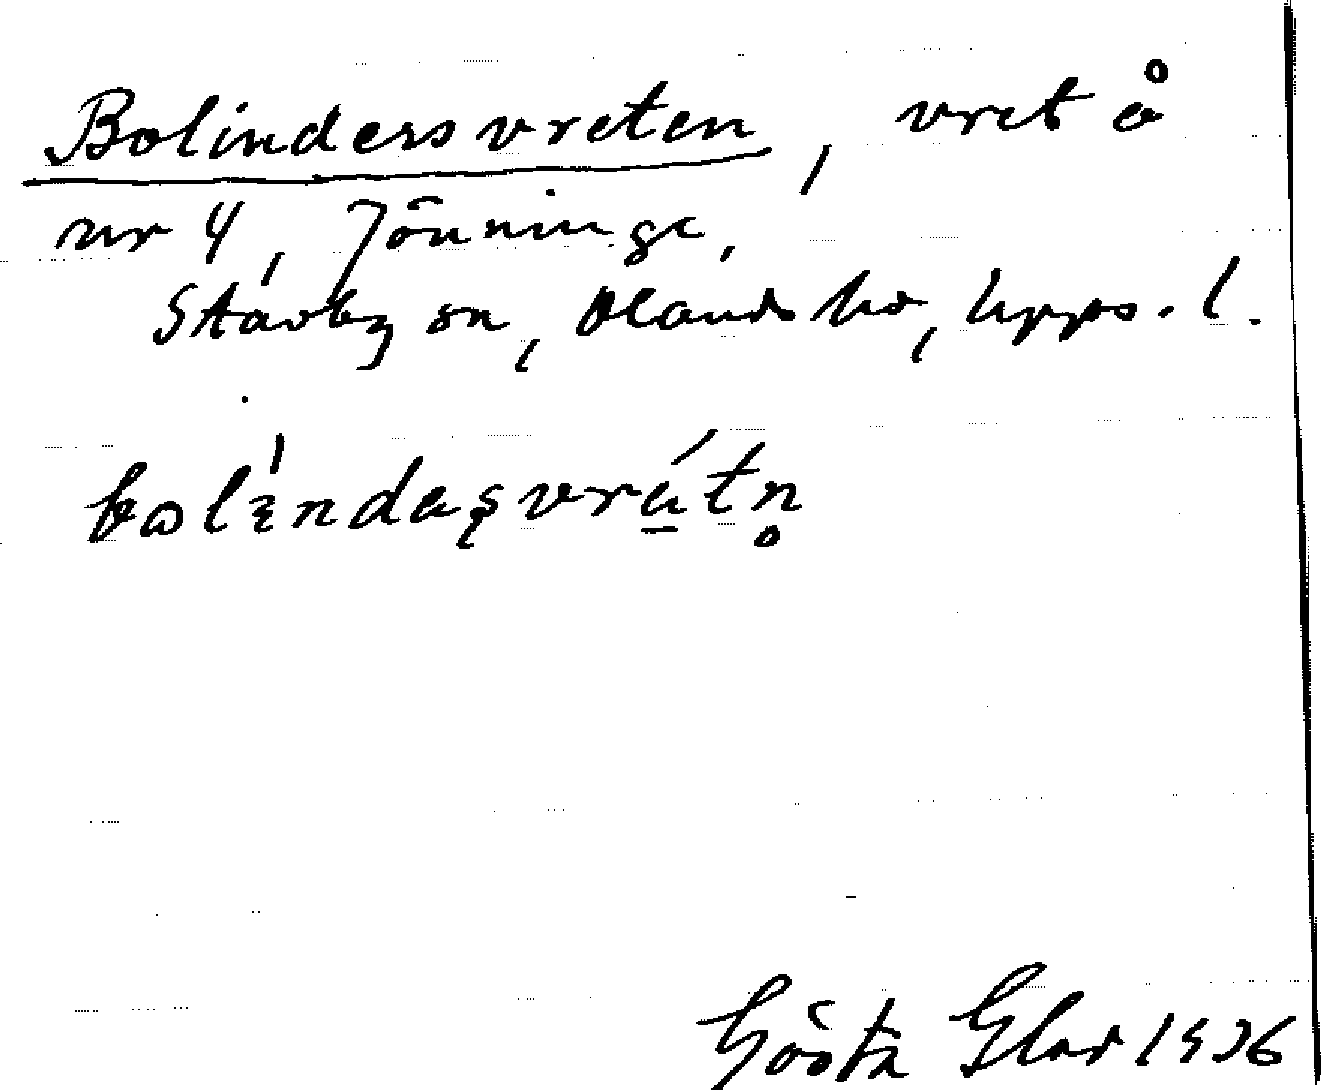 Bolindersvreten, vret å
nr 4, Jönninge,
Stavby sn, Olands hd, Upps. l.
Gösta Elar 1936